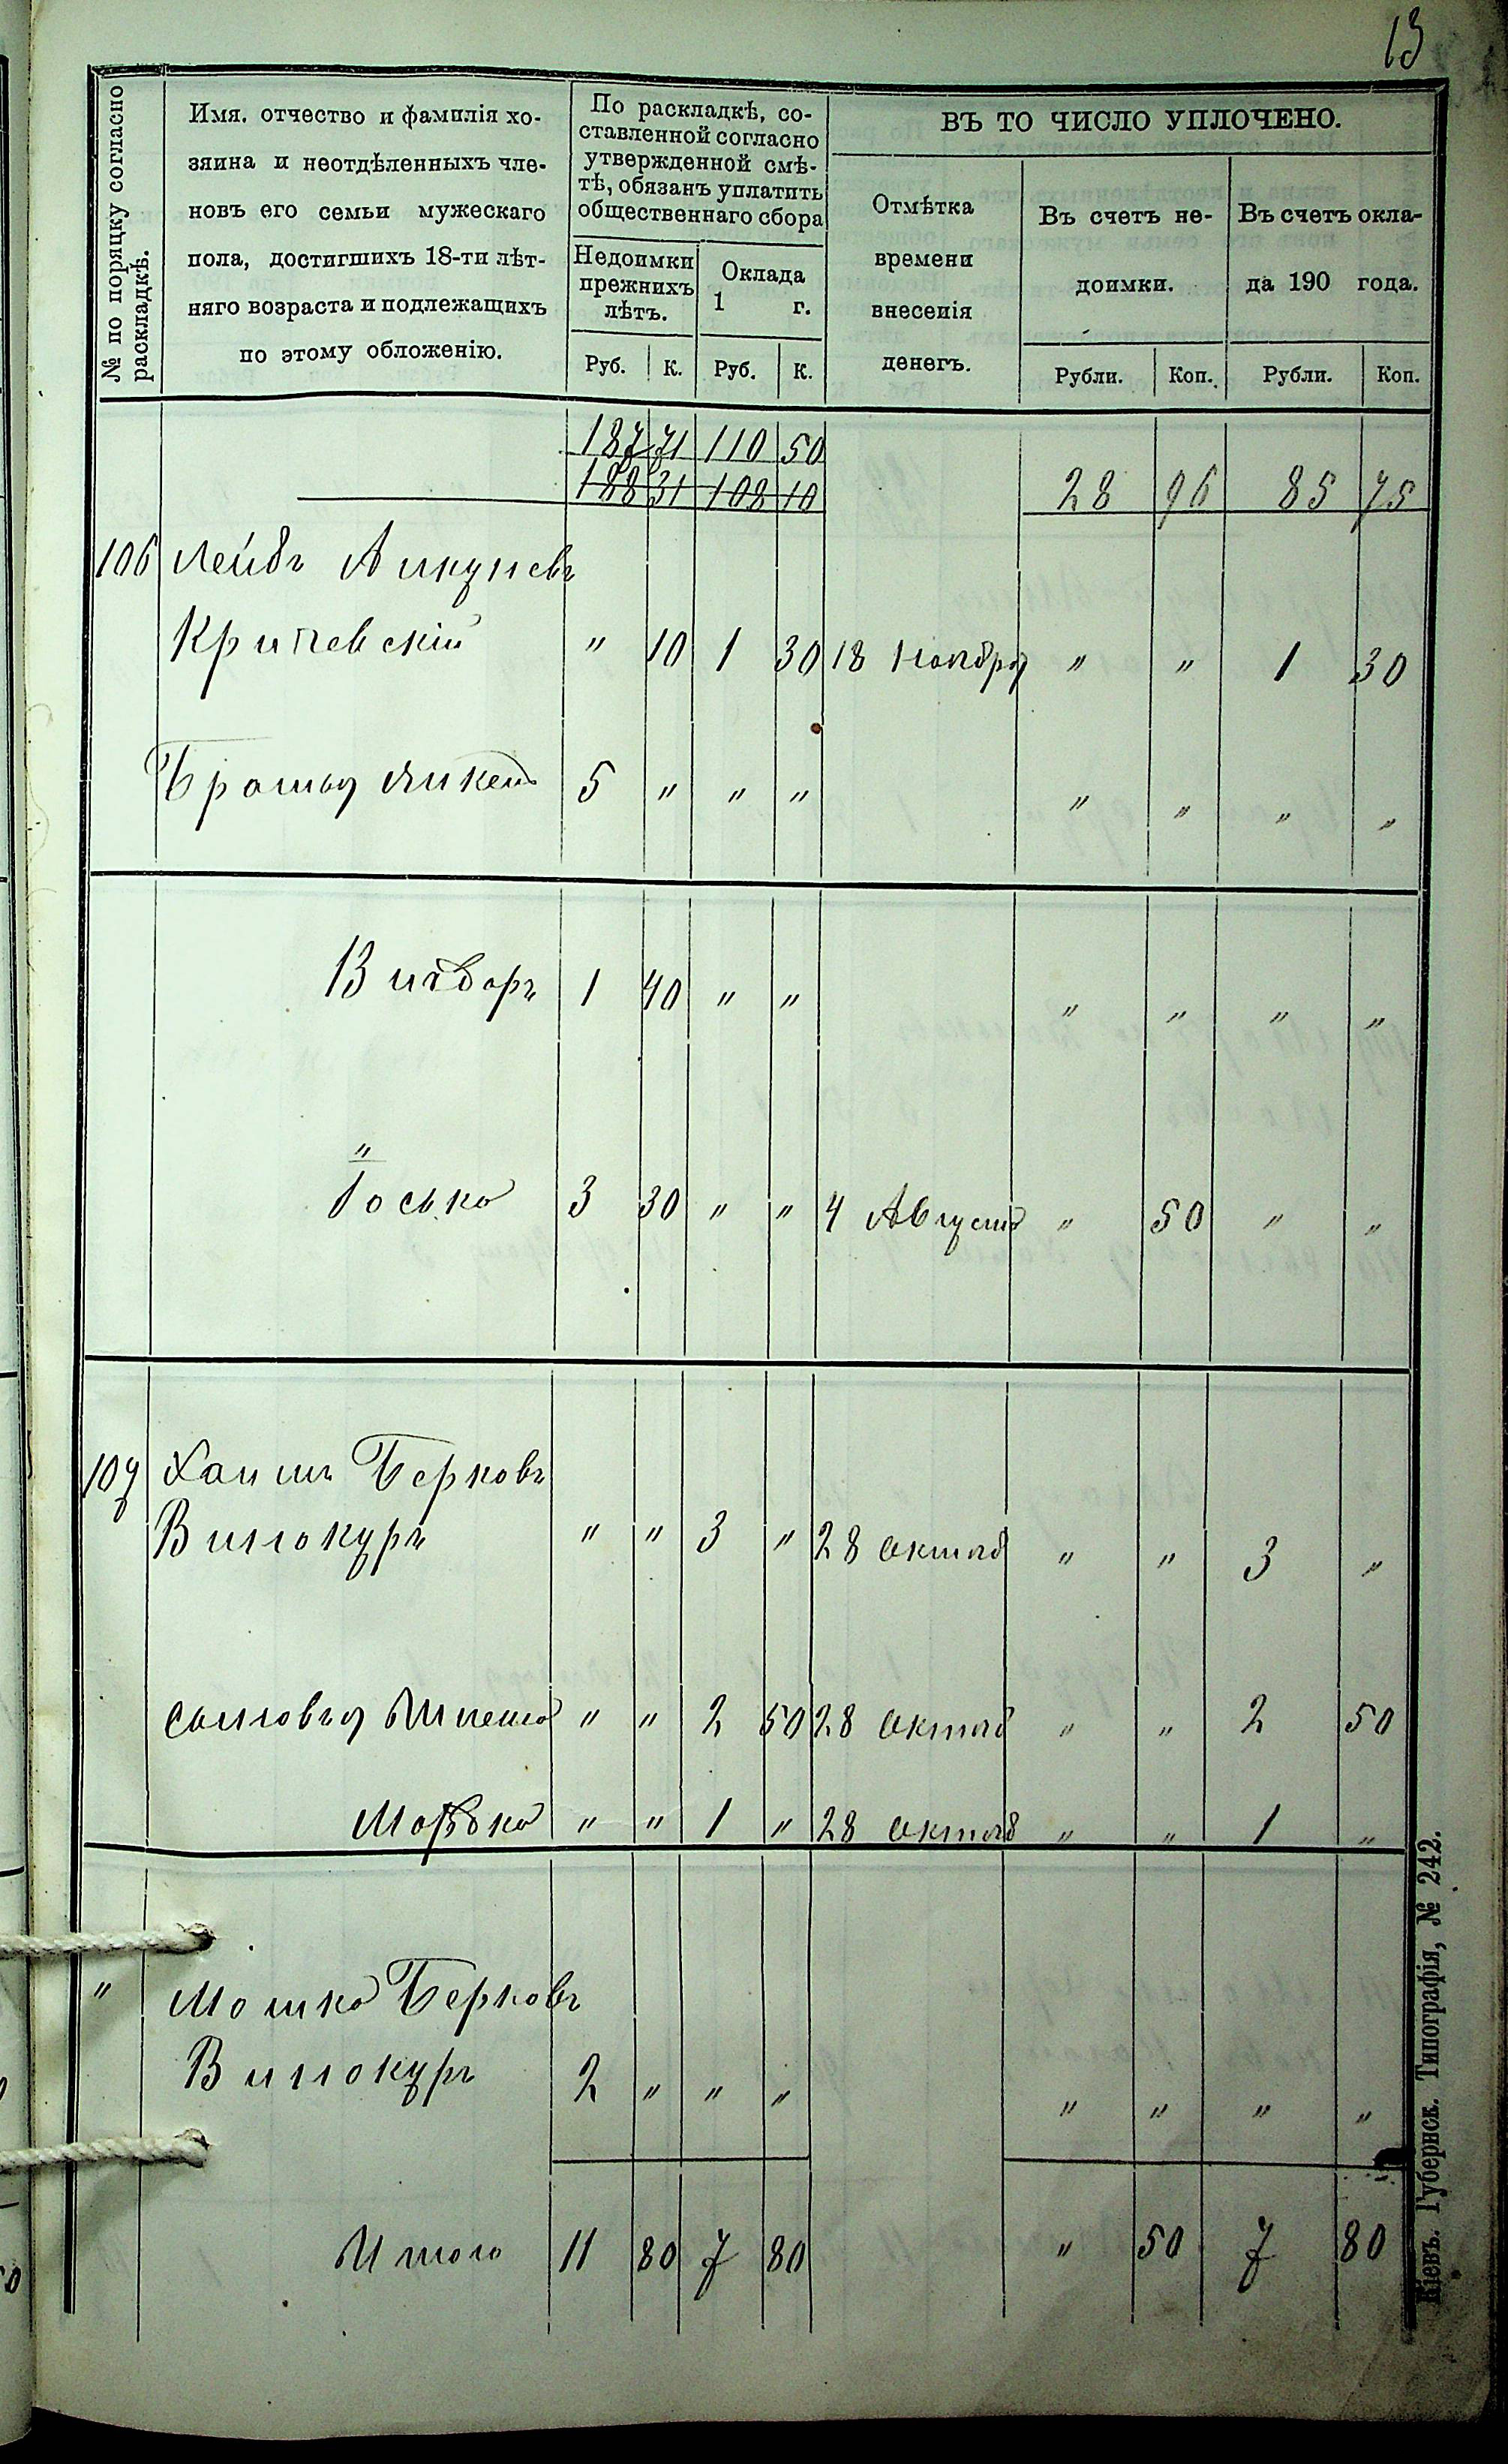 13
№ по порядку согласно раскладкѣ.
Имя. отчество и фамилія хо-
зяина и неотдѣленныхъ чле-
новъ его семьи мужескаго
пола, достигшихъ 18-ти лѣт-
няго возраста и подлежащихъ
по этому обложенію.
По раскладкѣ, со-
ставленной согласно
утвержденной смѣ-
тѣ, обязанъ уплатить
общественнаго сбора
Недоимки
прежнихъ
лѣтъ.
Оклада
1 г.
Руб. К. Руб. К.
ВЪ ТО ЧИСЛО УПЛОЧЕНО.
Отмѣтка
времени
внесенія
денегъ.
Въ счетъ не-
доимки.
Въ счетъ окла-
да 190 года.
Рубли. Коп. Рубли. Коп.
187 71 110 50
188 31 108 10 28 96 85 75
106 Лейбъ
Кричевскій " 10 1 30 18 Ноября " " 1 30
Братья 5 " " " " " " "
1 40 " " " " " "
"
Іоська 3 30 " " 4 Августа " 50 " "
107 Хаимъ Берковъ
Винокуръ " " 3 " 28 октяб " " 3 "
сыновья " " 2 50 28 октяб " " 2 50
" " 1 " 28 октяб " " 1 "
" Мошко Берковъ
Винокуръ 2 " " " " " " "
Итого 11 80 7 80 " 50 7 80
Кіевъ. Губернск. Типографія, № 242.